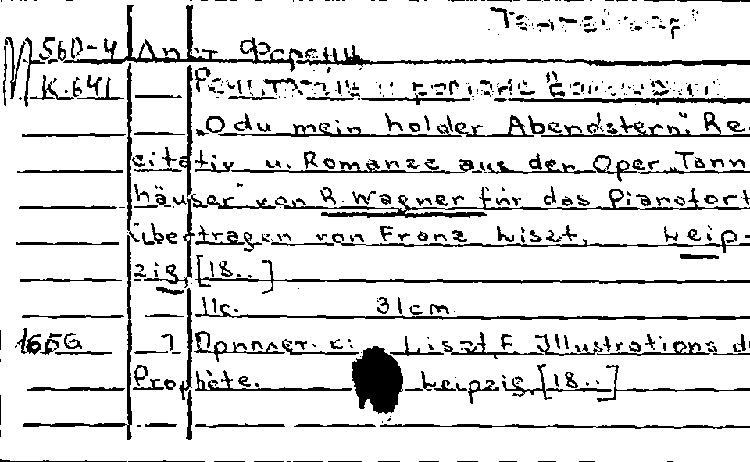 Тангейзер
М 560-4 Лист Ференц
К.641 Речитатив и романс
„O du mein holder Abendstern". Re-
citativ u. Romanze aus der Oper „Tann
häuser" von R. Wagner für das Pianofort
übertragen von Franz Liszt. Leip-
zig, [18..]
11c. 31cm
1656 Приплет. к: Liszt, F. Illustrations du
Prophète. Leipzig, [18..]